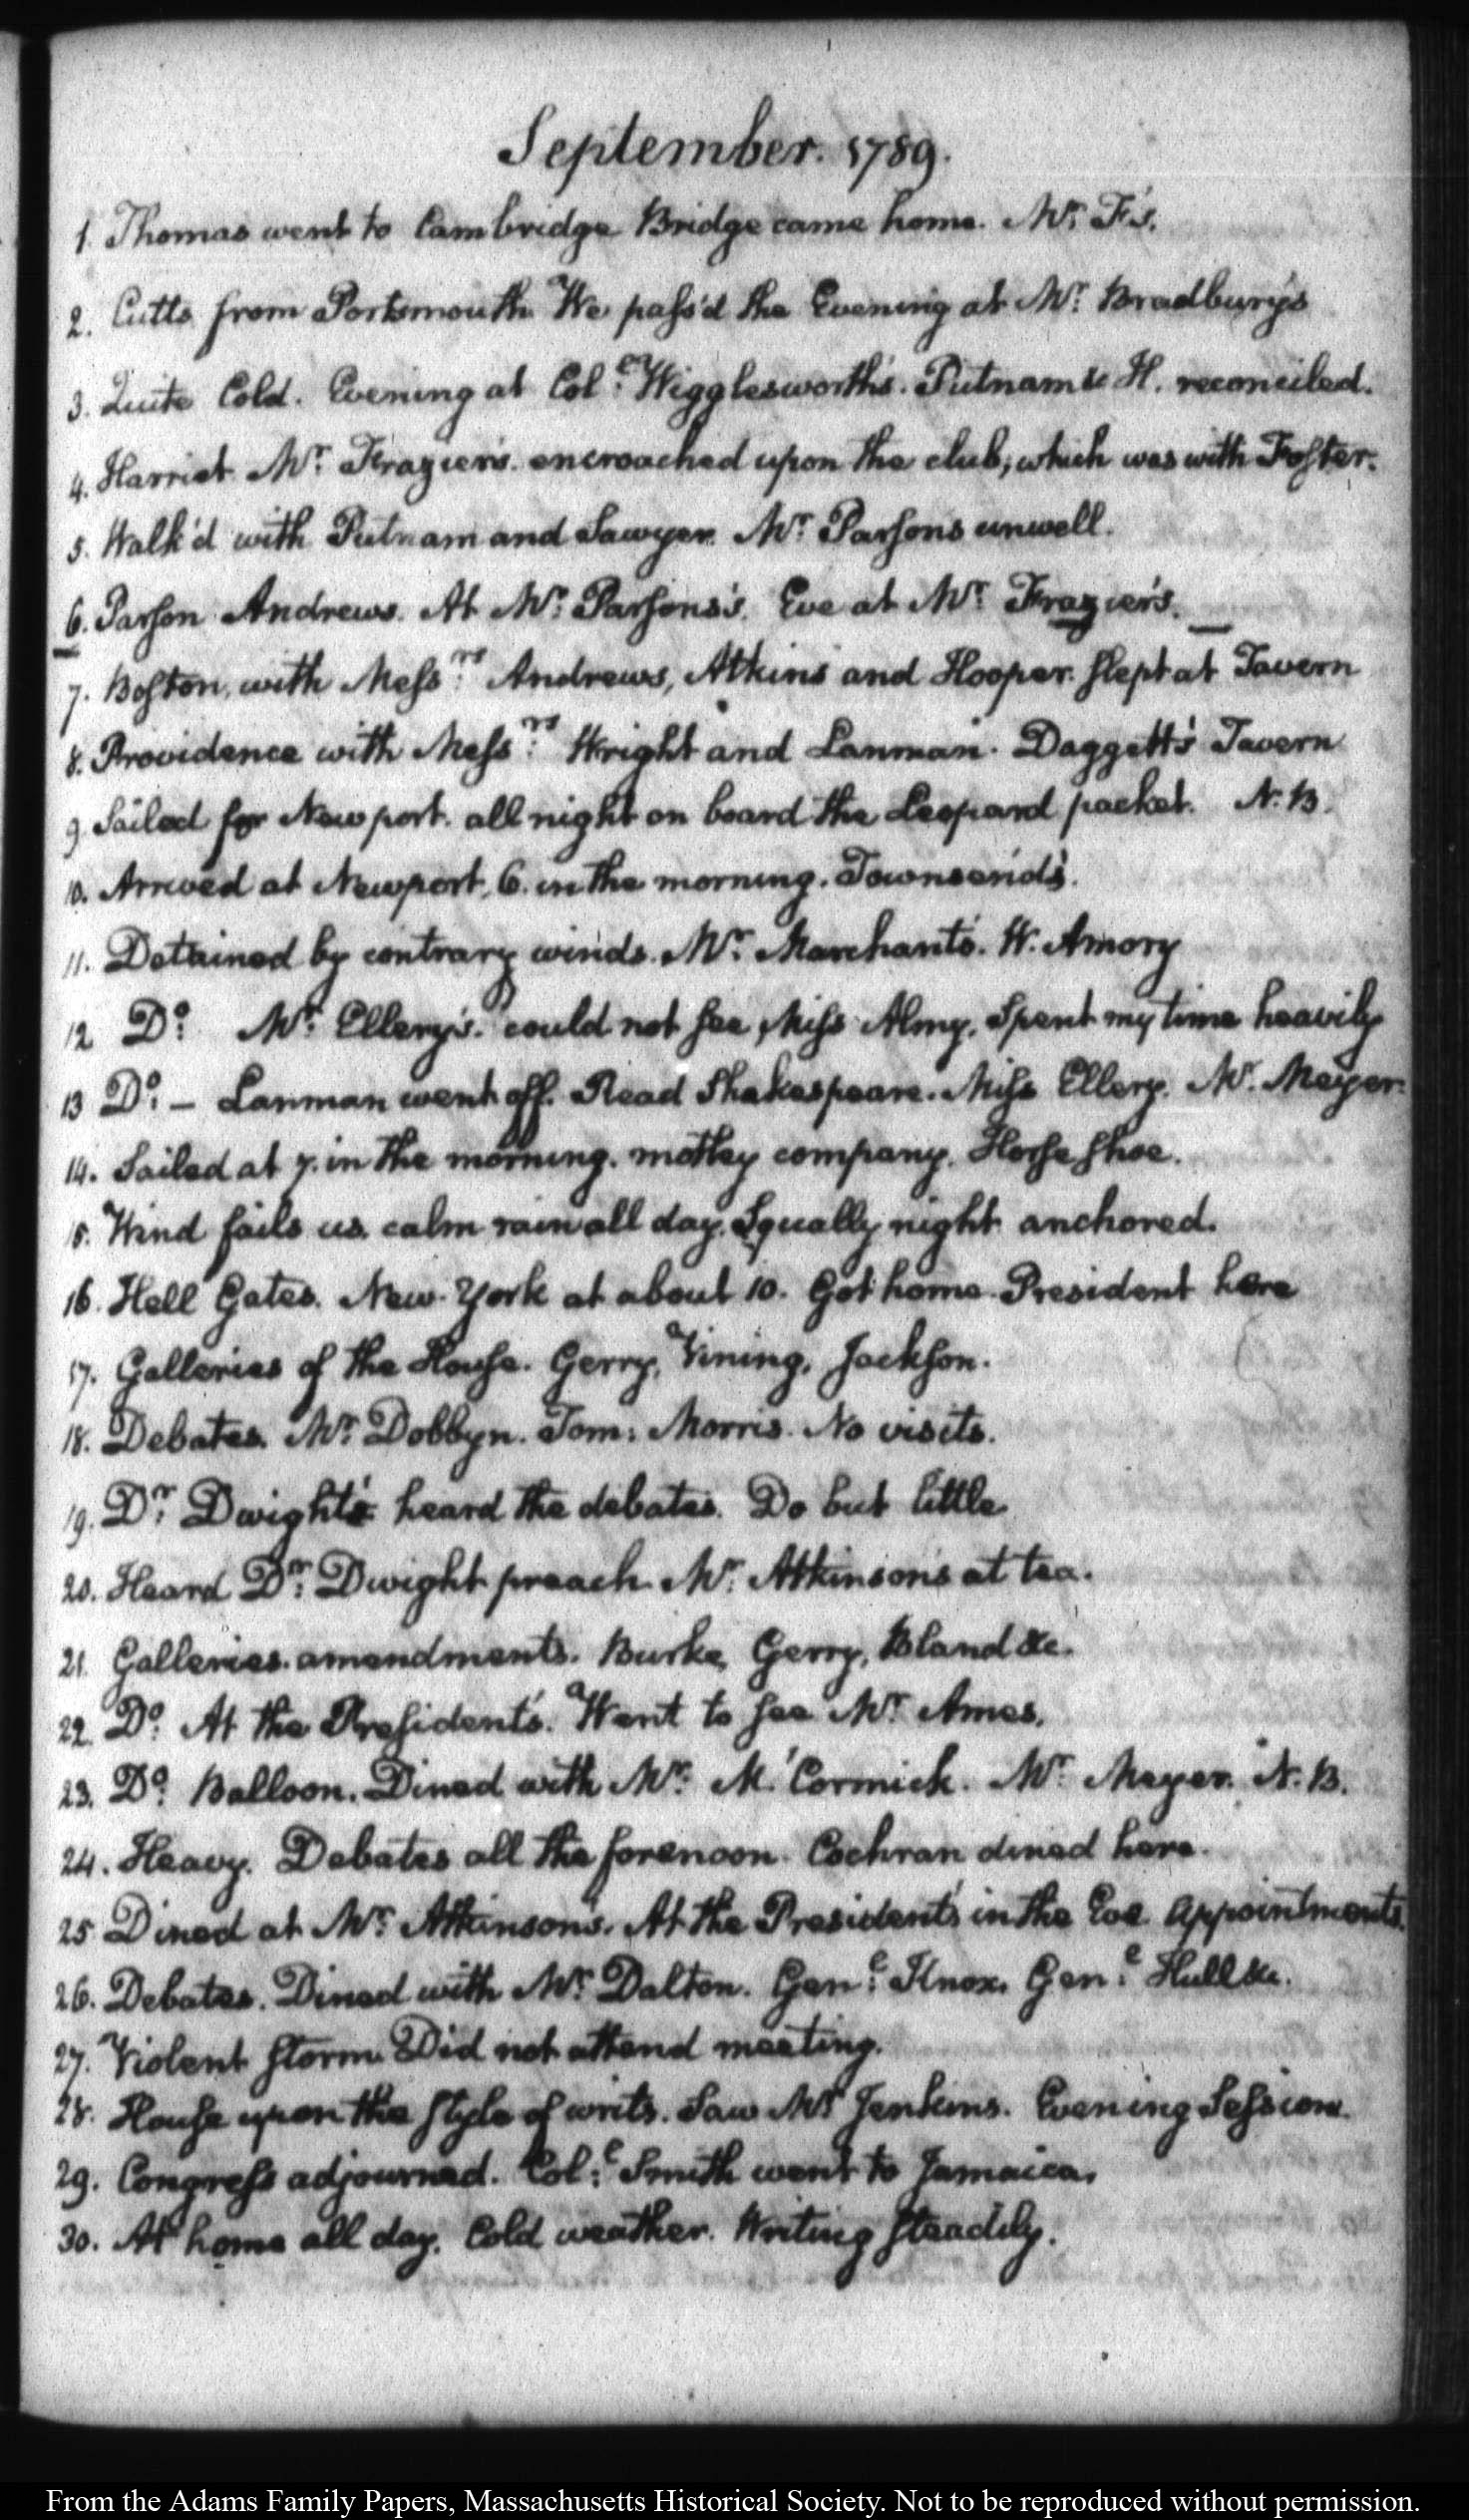 September. 1789.
1. Thomas went to Cambridge Bridge came home. Mr. F's.
2. Cutts from Portsmouth We pass'd the Evening at Mr. Bradbury's
3. Quite Cold. Evening at Coll. Wigglesworth's. Putnam & H. reconciled.
4. Harriet Mr. Frazier's. encroached upon the club; which was with Foster.
5. Walk'd with Putnam and Sawyer. Mr. Parsons unwell.
6. Parson Andrews. At Mr. Parsons's. Eve at Mr. Frazier's.
7. Boston, with Messrs. Andrews, Atkins and Hooper. slept at Tavern
8. Providence with Messrs. Wright and Lanman. Daggett's Tavern
9. Sailed for Newport. all night on board the Leopard packet. N.B.
10. Arrived at Newport, 6. in the morning. Townsend's.
11. Detained by contrary winds. Mr. Marchant's. W. Amory
12 Do. Mr. Ellery's. could not see Miss Almy. Spent my time heavily
13 Do. — Lanman went off. Read Shakespeare. Miss Ellery. Mr. Meyer.
14. Sailed at 7. in the morning. motley company. Horse shoe.
15. Wind fails us. calm rain all day. Squally night anchored.
16. Hell Gates. New-York at about 10. Got home. President here
17. Galleries of the House. Gerry, Vining, Jackson.
18. Debates. Mr. Dobbyn. Tom: Morris. No visits.
19. Dr. Dwight's heard the debates. Do but little
20. Heard Dr. Dwight preach. Mr. Atkinson's at tea.
21. Galleries. amendments. Burke, Gerry, Bland &c.
22. Do. At the President's. Went to see Mr. Ames.
23. Do. Balloon. Dined with Mr. M'Cormick. Mr. Meyer. N.B.
24. Heavy. Debates all the forenoon. Cochran dined here.
25 Dined at Mr. Atkinson's. At the President's in the Eve. Appointments.
26. Debates. Dined with Mr. Dalton. Genl. Knox, Genl. Hull &c.
27. Violent storm. Did not attend meeting.
28. House upon the style of writs. Saw Mr Jenkins. Evening Session.
29. Congress adjourned. Coll. Smith went to Jamaica.
30. At home all day. Cold weather. Writing steadily.
From the Adams Family Papers, Massachusetts Historical Society. Not to be reproduced without permission.